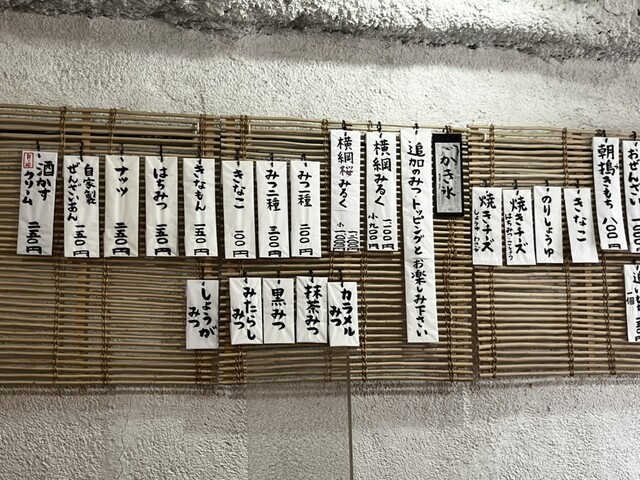 おぜんざい
朝搗きもち 八〇〇
きなこ
のりしょうゆ
焼きチーズ
はちみつこしょう
焼きチーズ
かき氷
追加のみつトッピングとお楽しみ下さい
横綱みるく
小 九〇〇
横綱桜みるく
みつ二種 二〇〇
みつ三種 三〇〇
きなこ 一〇〇
きなもん 一五〇
はちみつ 一五〇
ナッツ 二五〇
自家製
ぜんざいあん 一五〇
酒かす
クリーム 二五〇
カラメル
みつ
抹茶みつ
黒みつ
みたらし
みつ
しょうが
みつ